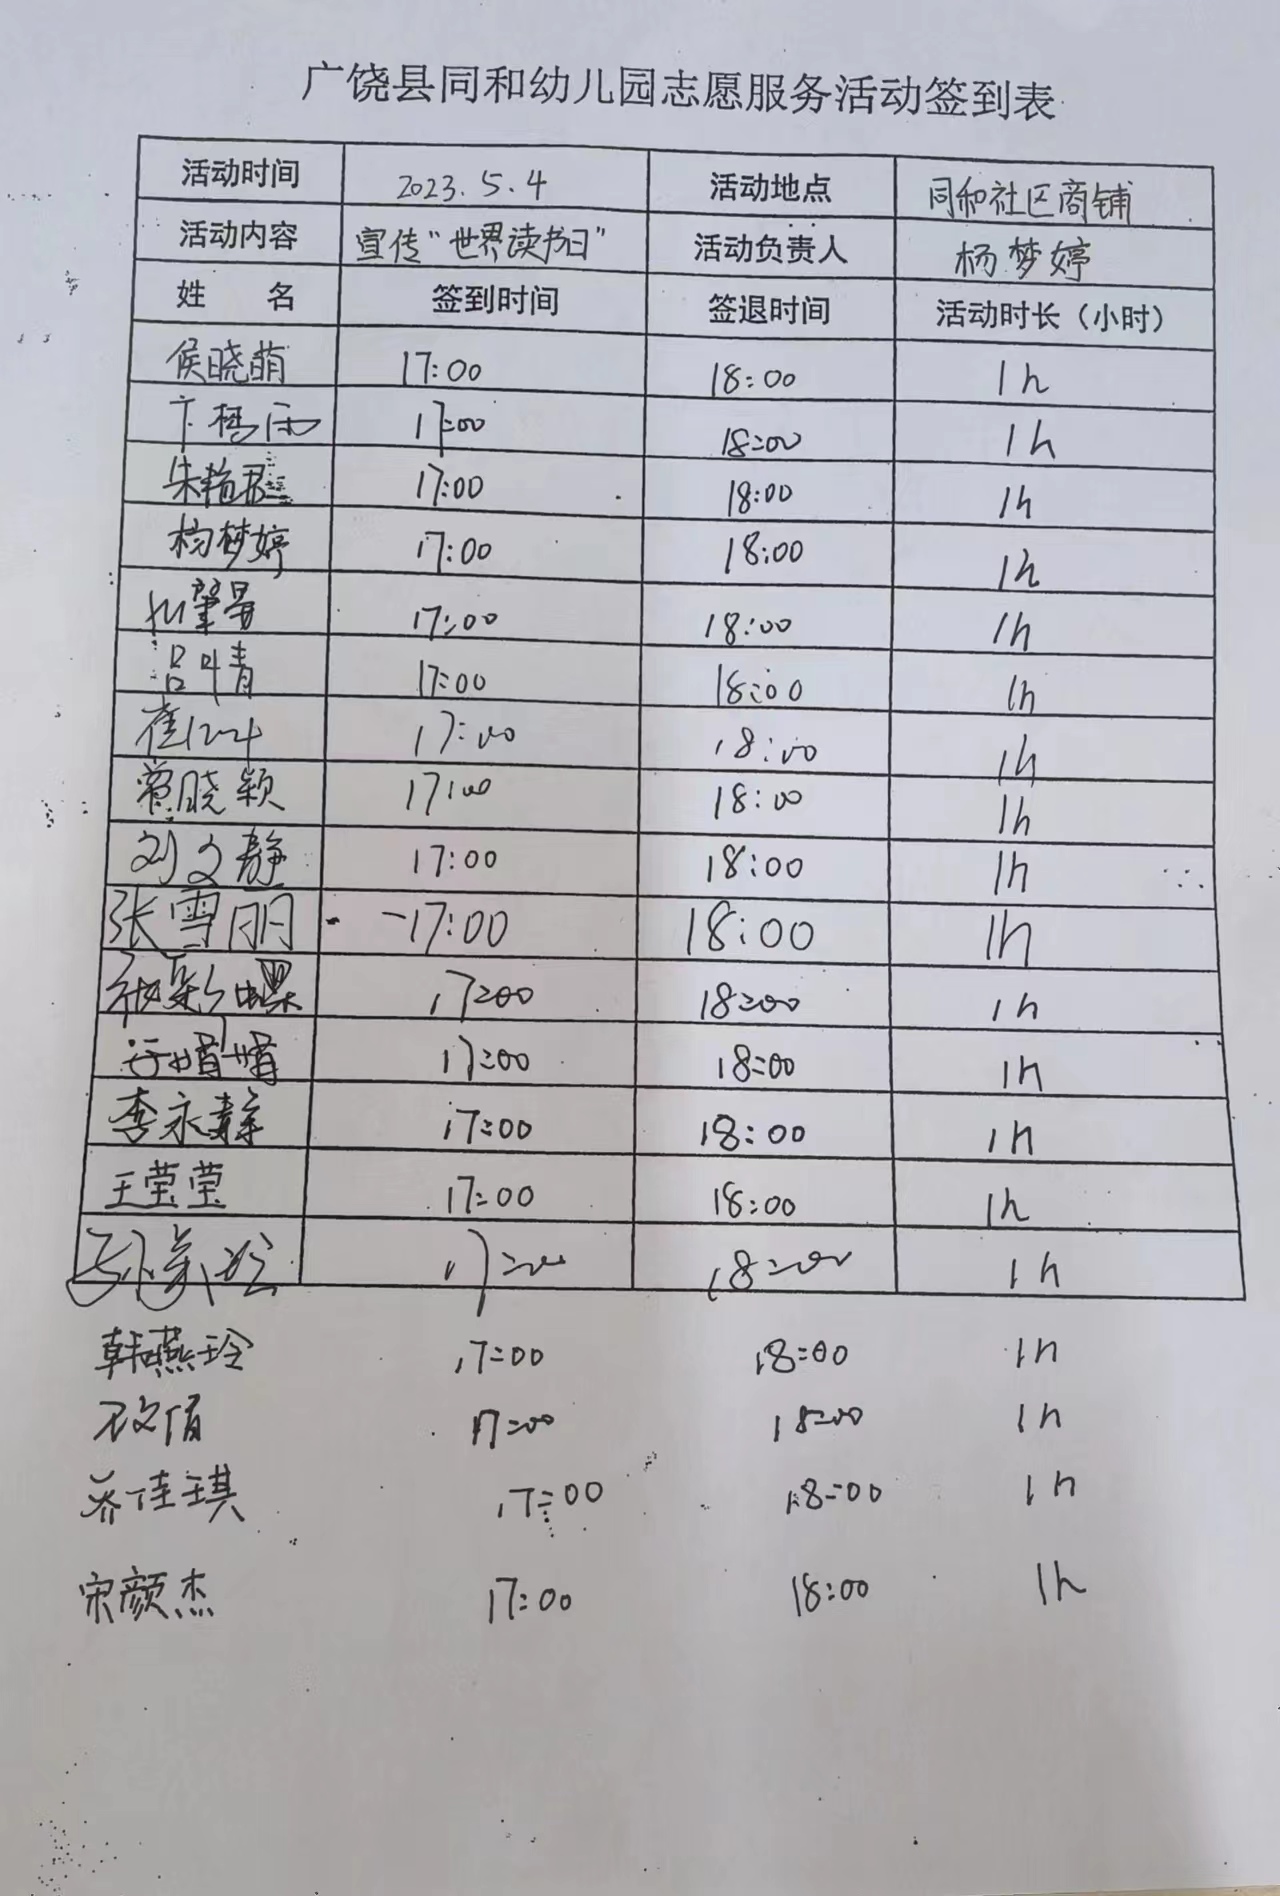 广饶县同和幼儿园志愿服务活动签到表
活动时间 2023.5.4 活动地点 同和社区商铺
活动内容 宣传“世界读书日” 活动负责人 杨梦婷
姓 名 签到时间 签退时间 活动时长（小时）
侯晓萌 17:00 18:00 1h
17:00 18:00 1h
朱艳君 17:00 18:00 1h
杨梦婷 17:00 18:00 1h
17:00 18:00 1h
吕晴 17:00 18:00 1h
崔 17:00 18:00 1h
曹晓颖 17:00 18:00 1h
刘文静 17:00 18:00 1h
张雪丽 17:00 18:00 1h
17:00 18:00 1h
17:00 18:00 1h
李永静 17:00 18:00 1h
王莹莹 17:00 18:00 1h
17:00 18:00 1h
韩燕玲 17:00 18:00 1h
17:00 18:00 1h
乔佳琪 17:00 18:00 1h
宋颜杰 17:00 18:00 1h